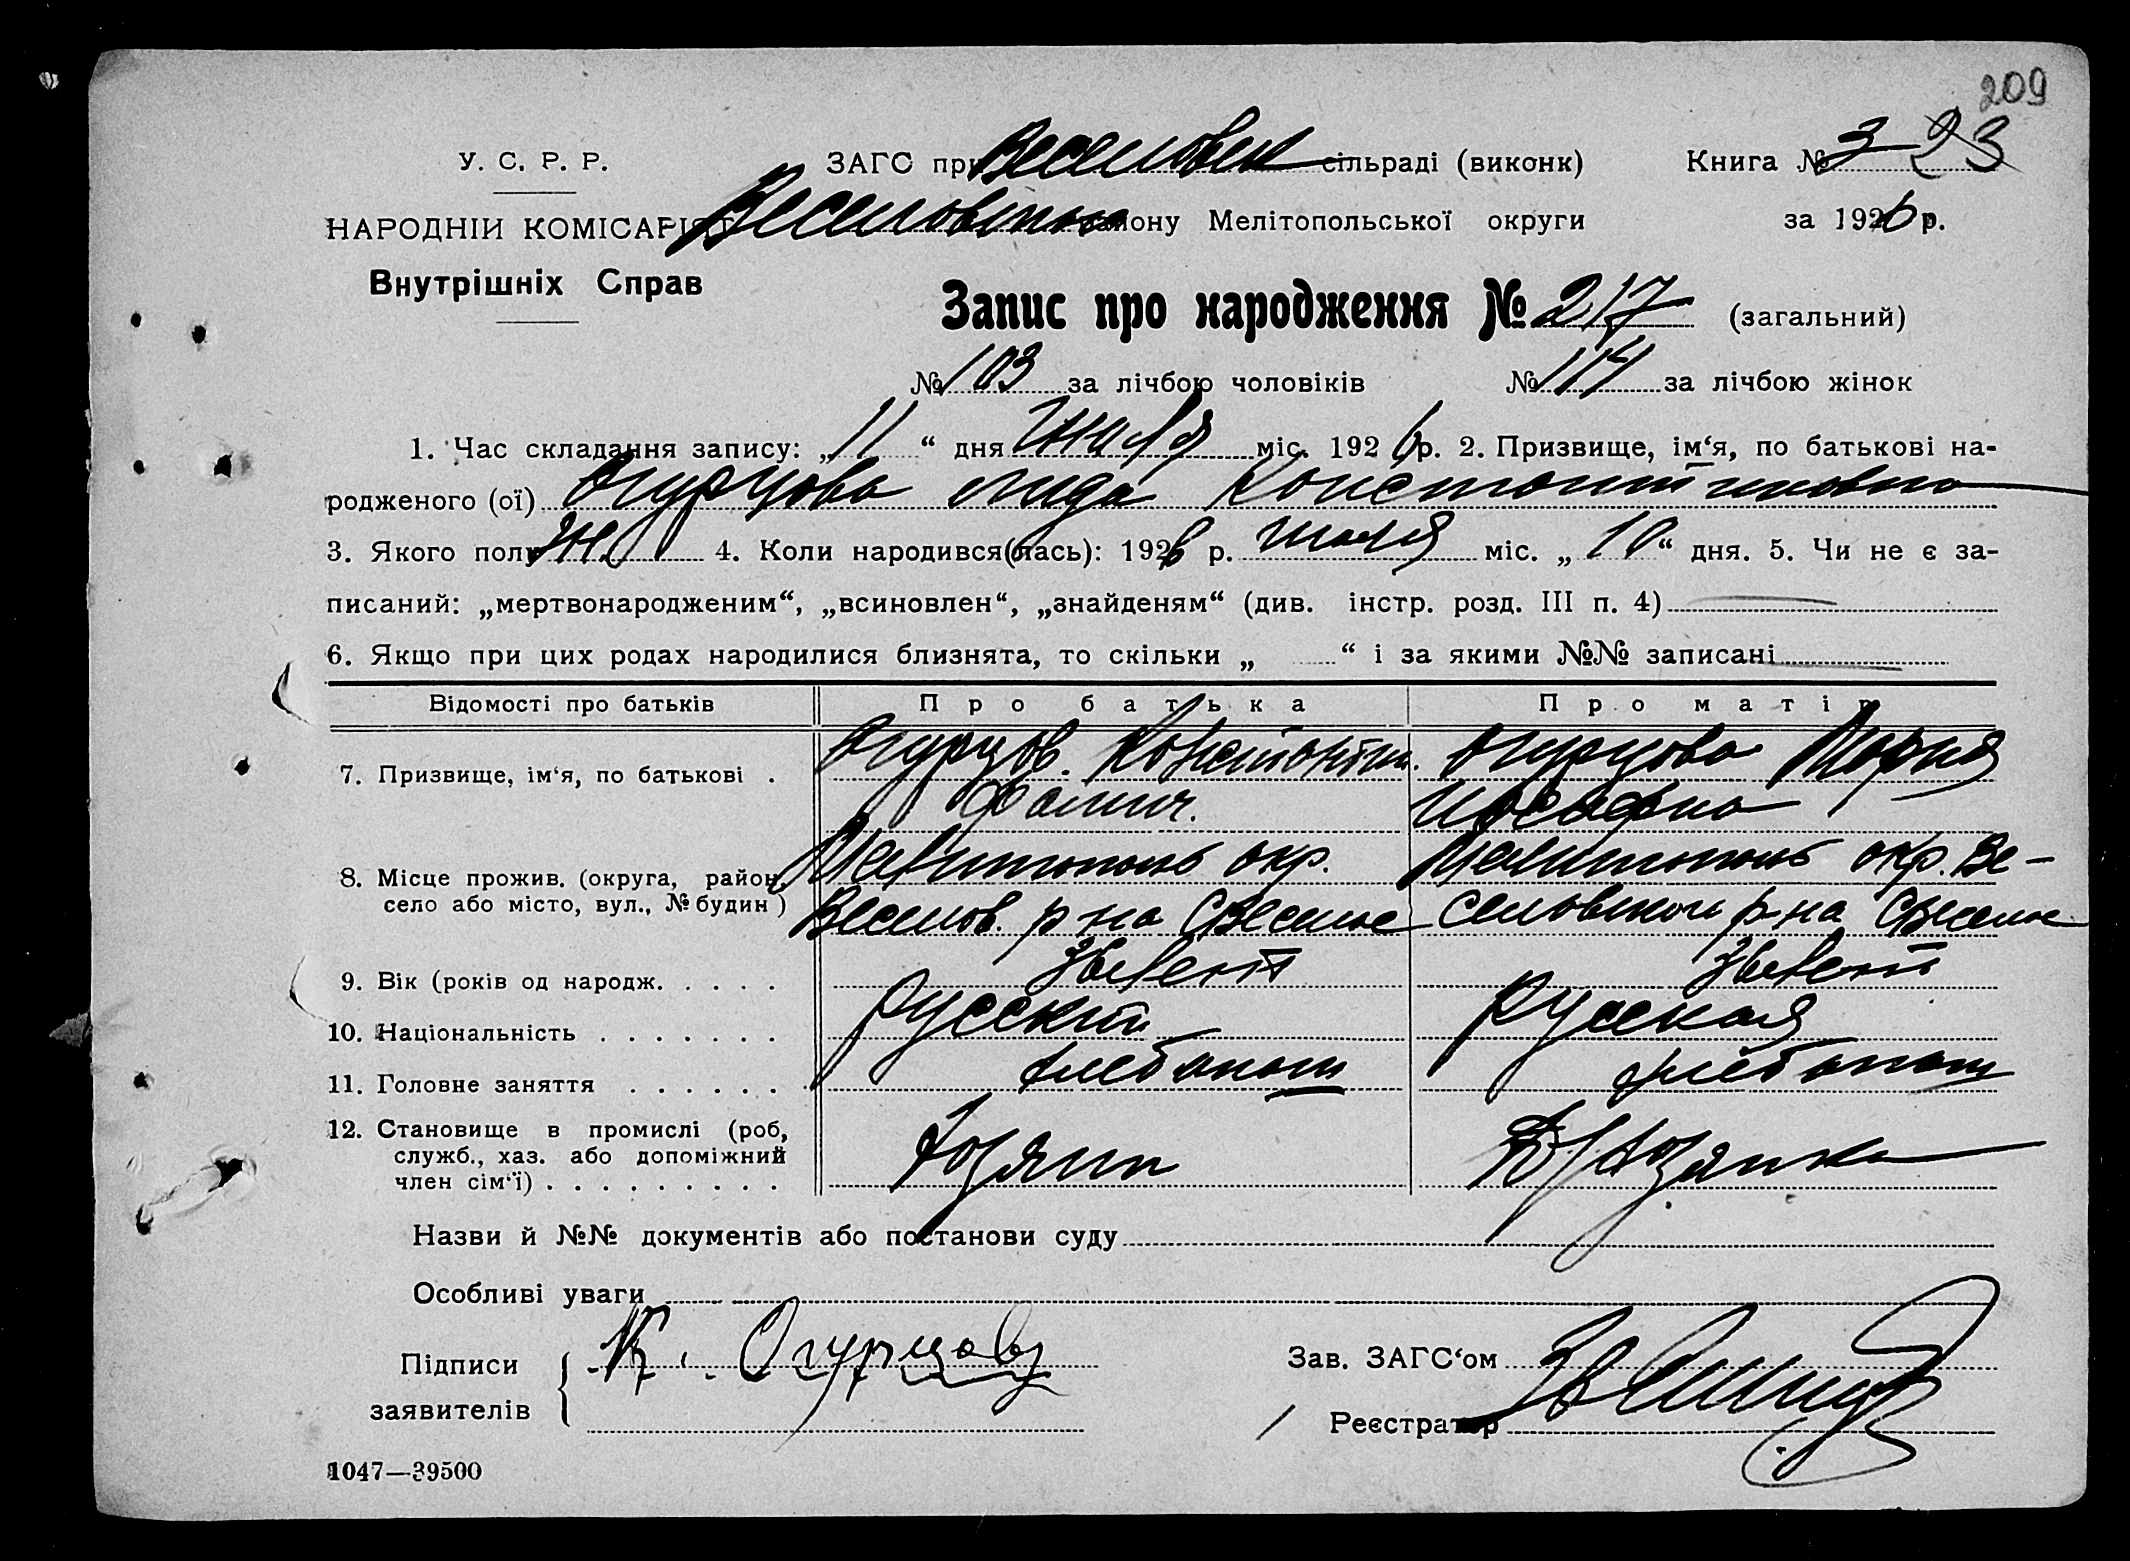 209
У. С. Р. Р. ЗАГС при Веселовск сільраді (виконк) Книга № 3 23
НАРОДНІЙ КОМІСАРІЯТ Веселовского району Мелітопольської округи за 1926 р.
Внутрішніх Справ
Запис про народження № 217 (загальний)
№ 103 за лічбою чоловіків № 114 за лічбою жінок
1. Час складання запису: „ 11 “ дня июля міс. 1926 р. 2. Призвище, ім‘я, по батькові на-
родженого (ої) Огурцова Лида Константиновна
3. Якого полу ж. 4. Коли народився(лась): 1926 р. июля міс. „ 10 “ дня. 5. Чи не є за-
писаний: „мертвонародженим“, „всиновлен“, „знайденям“ (див. інстр. розд. III п. 4)
6. Якщо при цих родах народилися близнята, то скільки „ “ і за якими №№ записані
Відомості про батьків Про батька Про матір
7. Призвище, ім‘я, по батькові . Огурцов Константин. Огурцова Мария
8. Місце прожив. (округа, район, Мелитополь окр. Мелитополь окр. Ве-
село або місто, вул., № будин) Веселов. р-на с Веселое селовского р-на с Веселое
9. Вік (років од народж. . . . .
10. Національність . . . . . . . русский русская
11. Головне заняття . . . . . . хлебопаш хлебопаш
12. Становище в промислі (роб, служб., хаз. або допоміжний член сім‘ї) . . . . . . . . . Хозяин хозяйка
Назви й №№ документів або постанови суду
Особливі уваги
Підписи К. Огурцов Зав. ЗАГС‘ом
заявителів Реєстратор
1047—39500